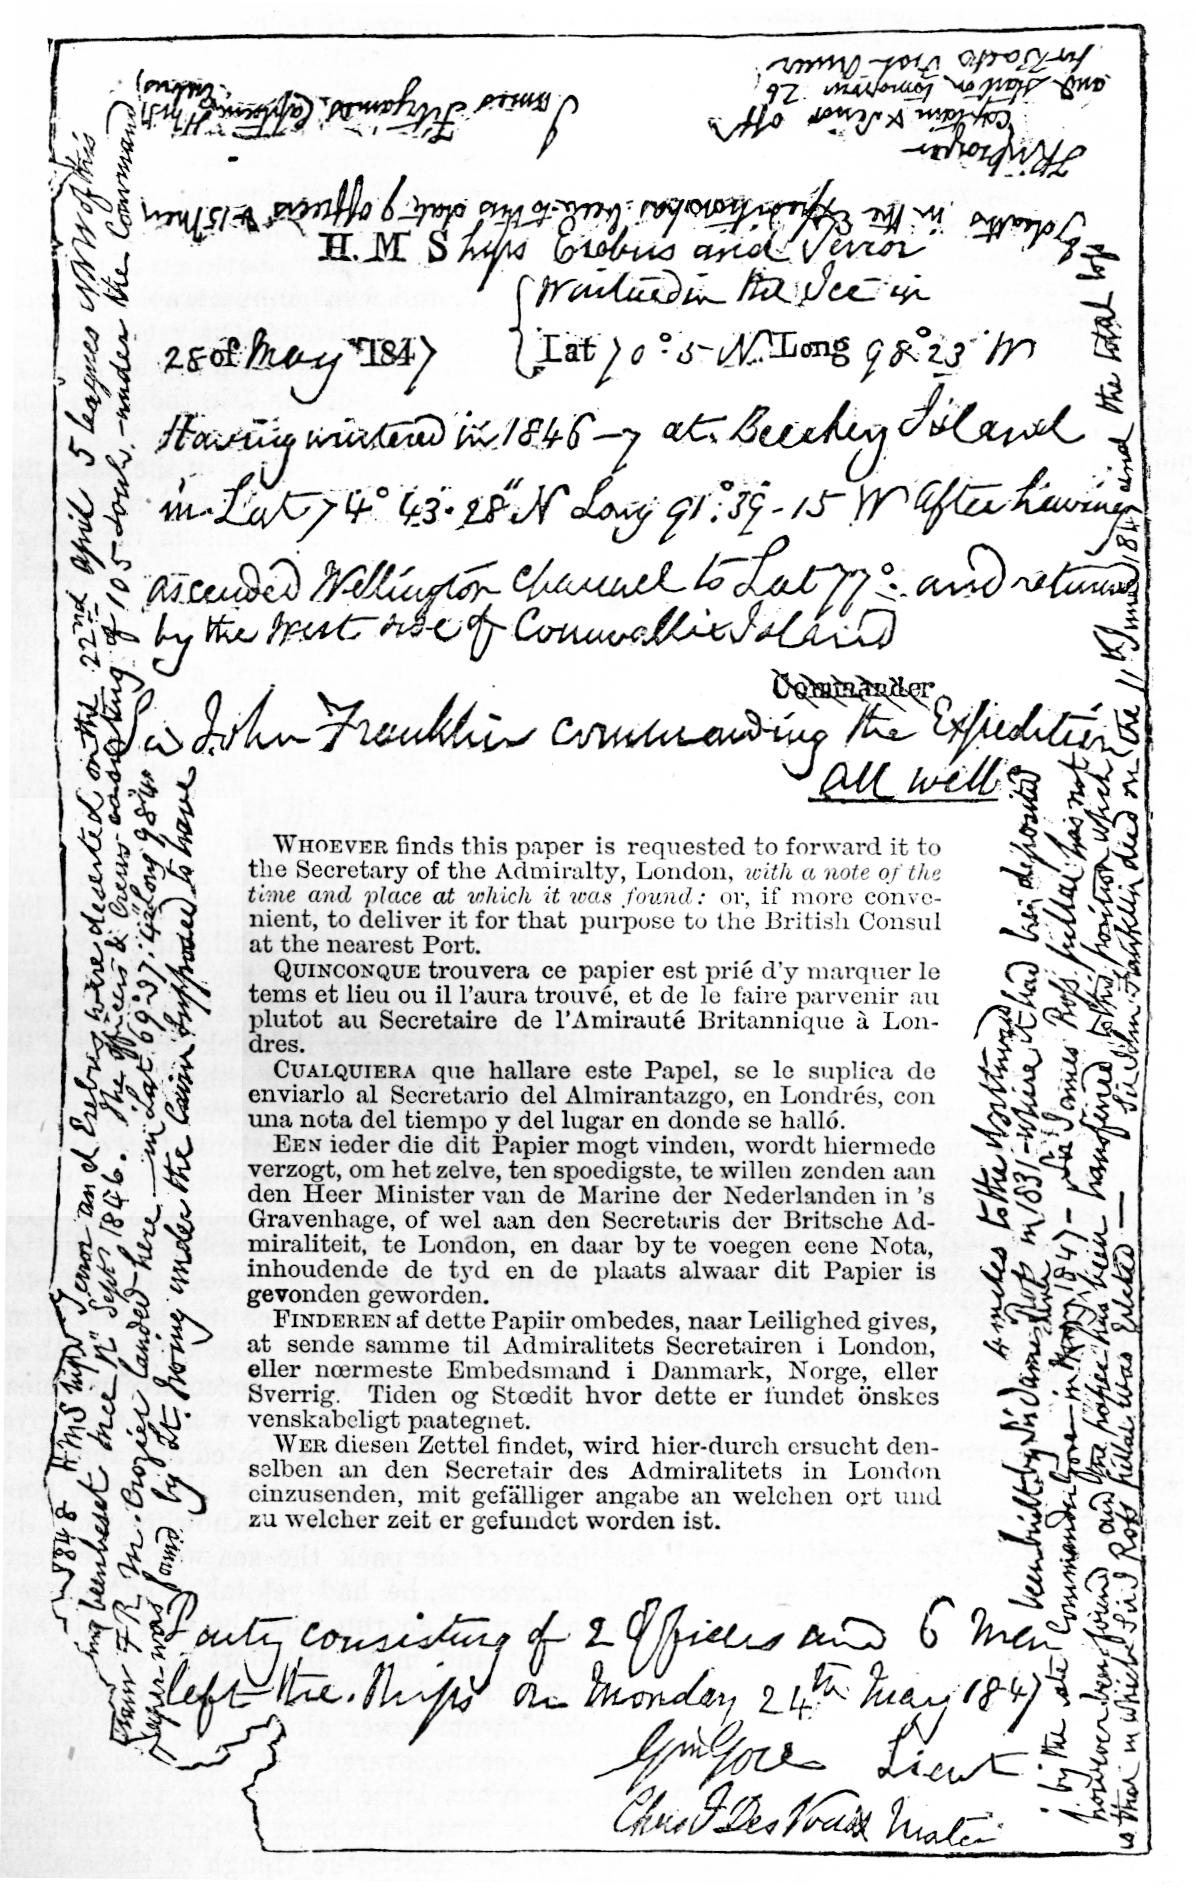 H.M.Ships Erebus and Terror
Wintered in the Ice in
28 of May 1847
Lat 70°.5 N. Long 98°.23 W
Having wintered in 1846-7 at Beechey Island
in Lat 74° 43.28" N Long 91°.39-15 W After having
ascended Wellington Channel to Lat 77°. and returned
by the West side of Cornwallis Island
Commander
Sir John Franklin commanding the Expedition
All well
WHOEVER finds this paper is requested to forward it to
the Secretary of the Admiralty, London, with a note of the
time and place at which it was found: or, if more conve-
nient, to deliver it for that purpose to the British Consul
at the nearest Port.
QUINCONQUE trouvera ce papier est prié d'y marquer le
tems et lieu ou il l'aura trouvé, et de le faire parvenir au
plutot au Secretaire de l'Amirauté Britannique à Lon-
dres.
CUALQUIERA que hallare este Papel, se le suplica de
enviarlo al Secretario del Almirantazgo, en Londrés, con
una nota del tiempo y del lugar en donde se halló.
EEN ieder die dit Papier mogt vinden, wordt hiermede
verzogt, om het zelve, ten spoedigste, te willen zenden aan
den Heer Minister van de Marine der Nederlanden in 's
Gravenhage, of wel aan den Secretaris der Britsche Ad-
miraliteit, te London, en daar by te voegen eene Nota,
inhoudende de tyd en de plaats alwaar dit Papier is
gevonden geworden.
FINDEREN af dette Papiir ombedes, naar Leilighed gives,
at sende samme til Admiralitets Secretairen i London,
eller nœrmeste Embedsmand i Danmark, Norge, eller
Sverrig. Tiden og Stœdit hvor dette er fundet önskes
venskabeligt paategnet.
WER diesen Zettel findet, wird hier-durch ersucht den-
selben an den Secretair des Admiralitets in London
einzusenden, mit gefälliger angabe an welchen ort und
zu welcher zeit er gefundet worden ist.
Party consisting of 2 Officers and 6 Men
left the Ships on Monday 24th May 1847
Gm Gore Lieut
Chas F Des Voeux Mate
1848 H.M.Ships Terror and Erebus were deserted on the 22nd April 5 leagues NNW of this
ing been beset since 12th Septr 1846. The officers & Crews consisting of 105 souls - under the Command
tain F.R.M. Crozier landed here - in Lat. 69°37'.42" Long 98°41'
paper was found by Lt. Irving under the Cairn supposed to have
been built by Sir James Ross in 1831 - where it had been deposited
4 miles to the Northward
by the late Commander Gore in May June 1847 - Sir James Ross' pillar has not
however been found and the paper has been transferred to this position which
is that in which Sir J Ross pillar was erected - Sir John Franklin died on the 11th June 1847 and the total loss
by deaths in the Expedition has been to this date 9 officers & 15 Men
James Fitzjames Captain HMS Erebus
F R M Crozier
Captain & Senior offr
and start on tomorrow 26
for Backs Fish River